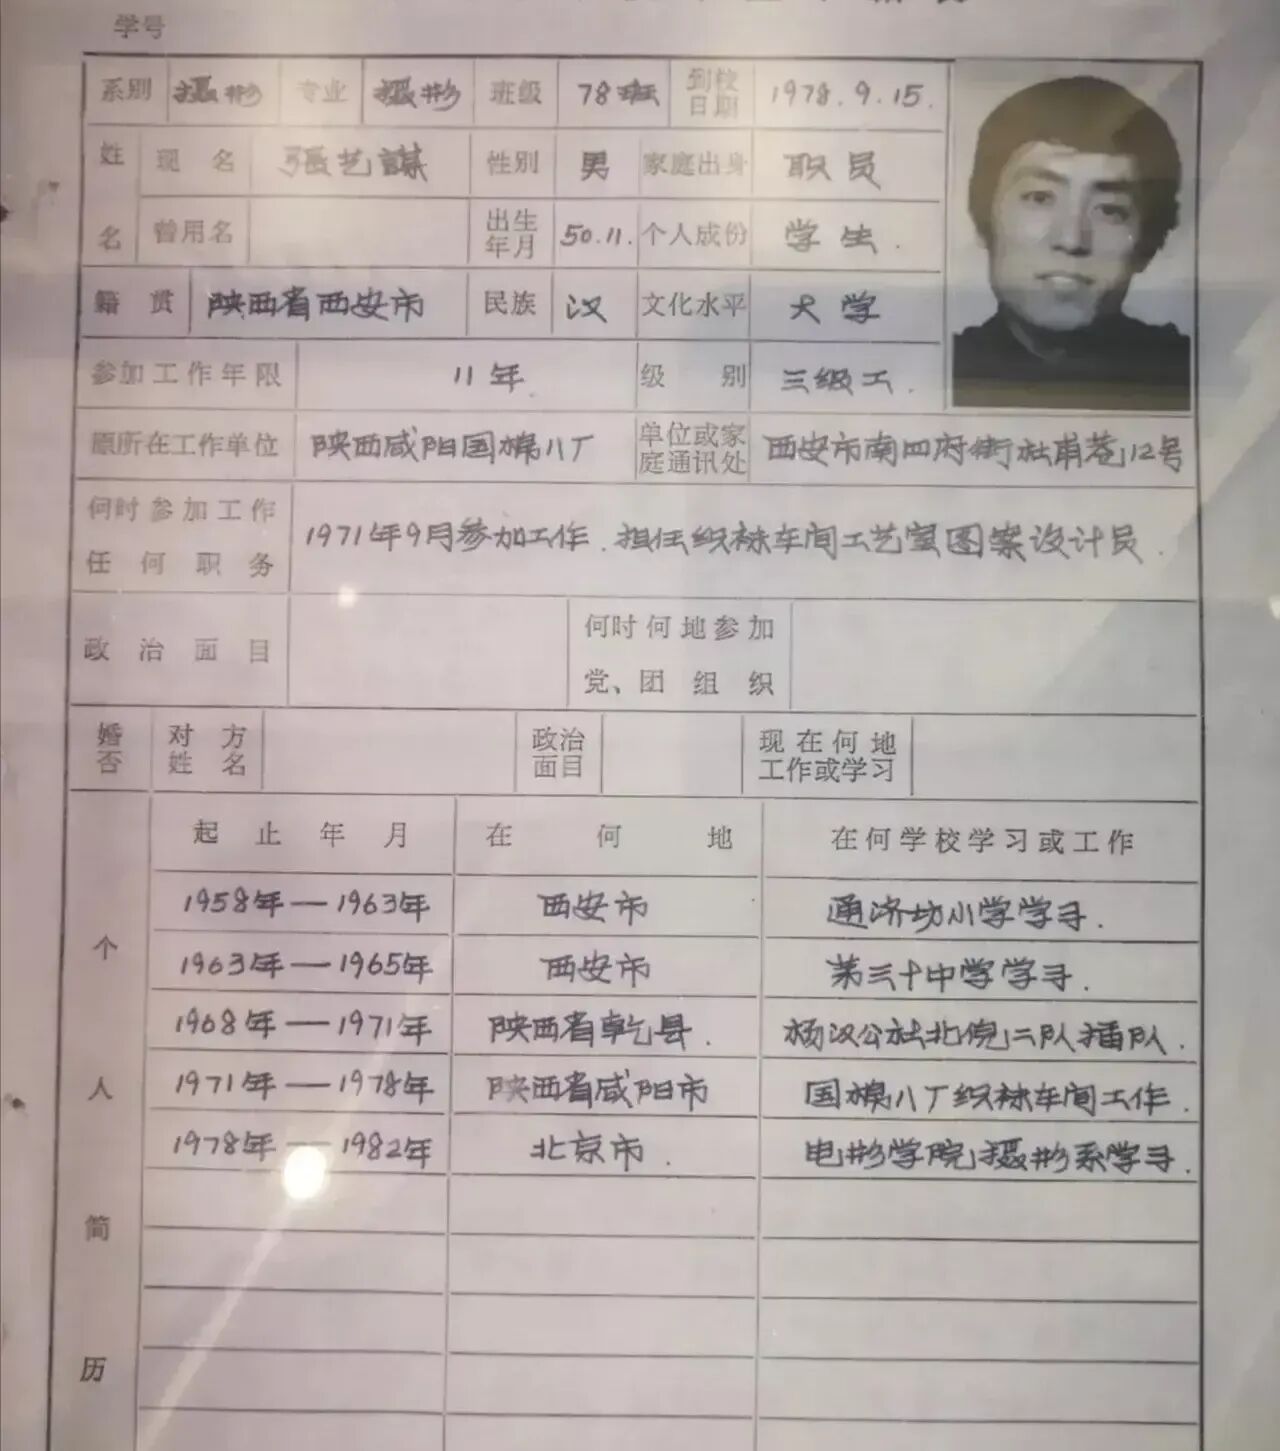 学号
系别 摄影 专业 摄影 班级 78班 到校日期 1978.9.15.
姓名 现名 張艺謀 性别 男 家庭出身 职员
曾用名 出生年月 50.11. 个人成份 学生.
籍贯 陕西省西安市 民族 汉 文化水平 大学
参加工作年限 11年. 级别 三级工.
原所在工作单位 陕西咸阳国棉八厂 单位或家庭通讯处 西安市南四府街社甫巷12号
何时参加工作任何职务 1971年9月参加工作.担任织袜车间工艺室图案设计员.
政治面目 何时何地参加党、团组织
婚否 对方姓名 政治面目 现在何地工作或学习
个人简历 起止年月 在何地 在何学校学习或工作
1958年—1963年 西安市 通济坊小学学习.
1963年—1965年 西安市 第三十中学学习.
1968年—1971年 陕西省乾县. 杨汉公社北倪二队插队.
1971年—1978年 陕西省咸阳市 国棉八厂织袜车间工作.
1978年—1982年 北京市. 电影学院摄影系学习.